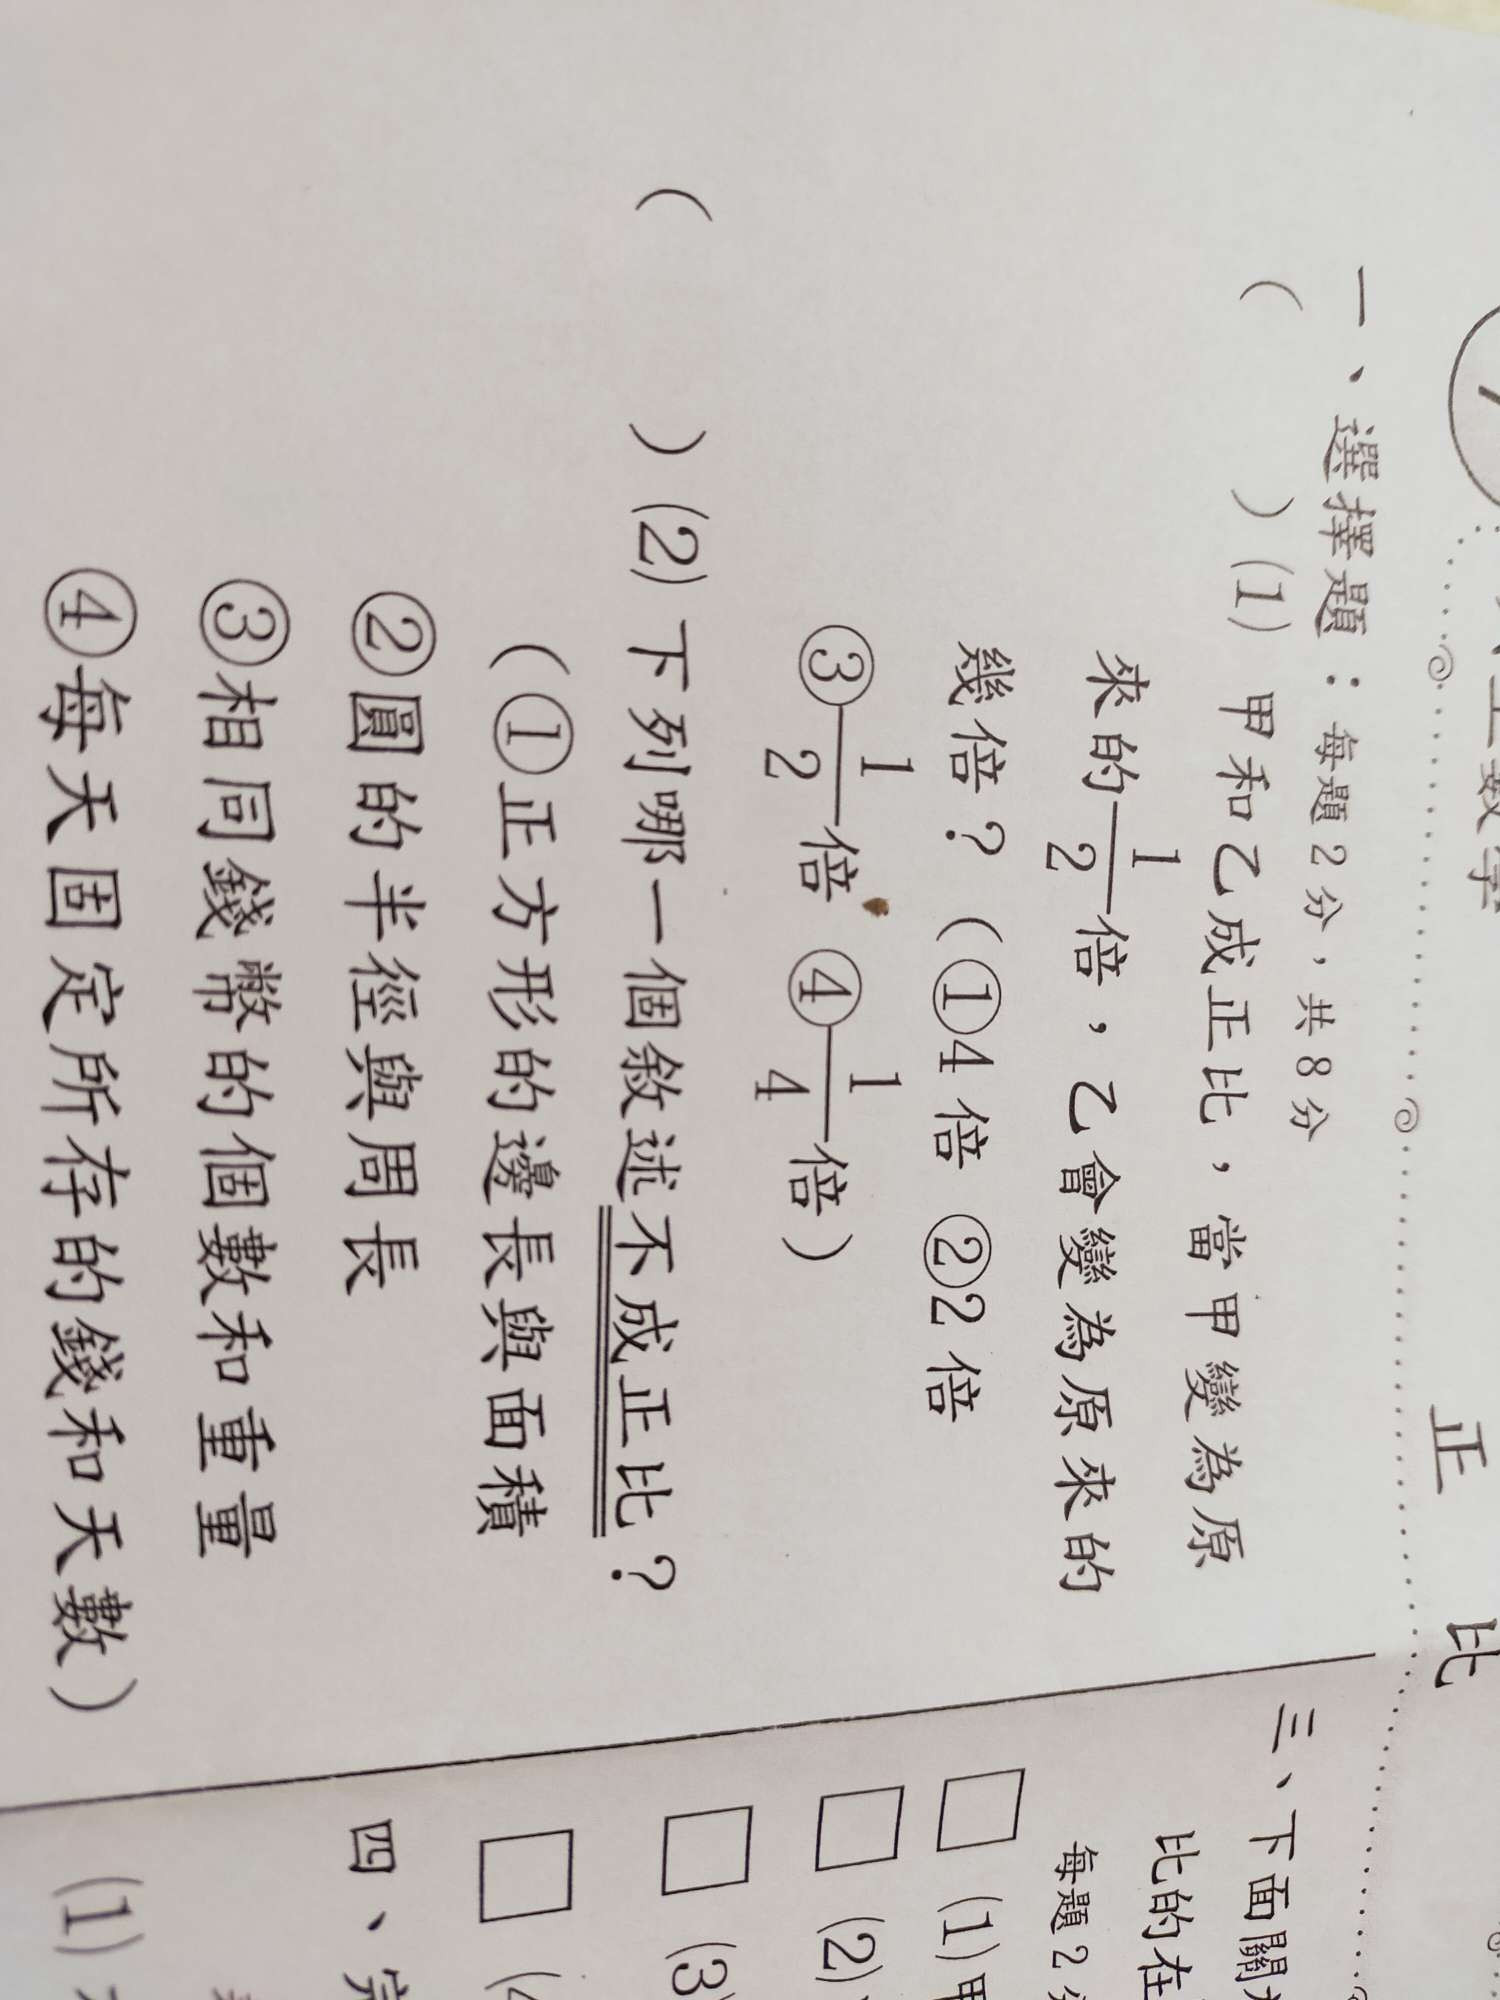 正比
一、選擇題：每題2分，共8分
（　）(1) 甲和乙成正比，當甲變為原
來的1/2倍，乙會變為原來的
幾倍？（①4倍 ②2倍
③1/2倍 ④1/4倍）
（　）(2) 下列哪一個敘述不成正比？
（①正方形的邊長與面積
②圓的半徑與周長
③相同錢幣的個數和重量
④每天固定所存的錢和天數）
三、下面關
比的在
每題2分
□ (1) 甲
□ (2)
□ (3)
□
四、
(1)